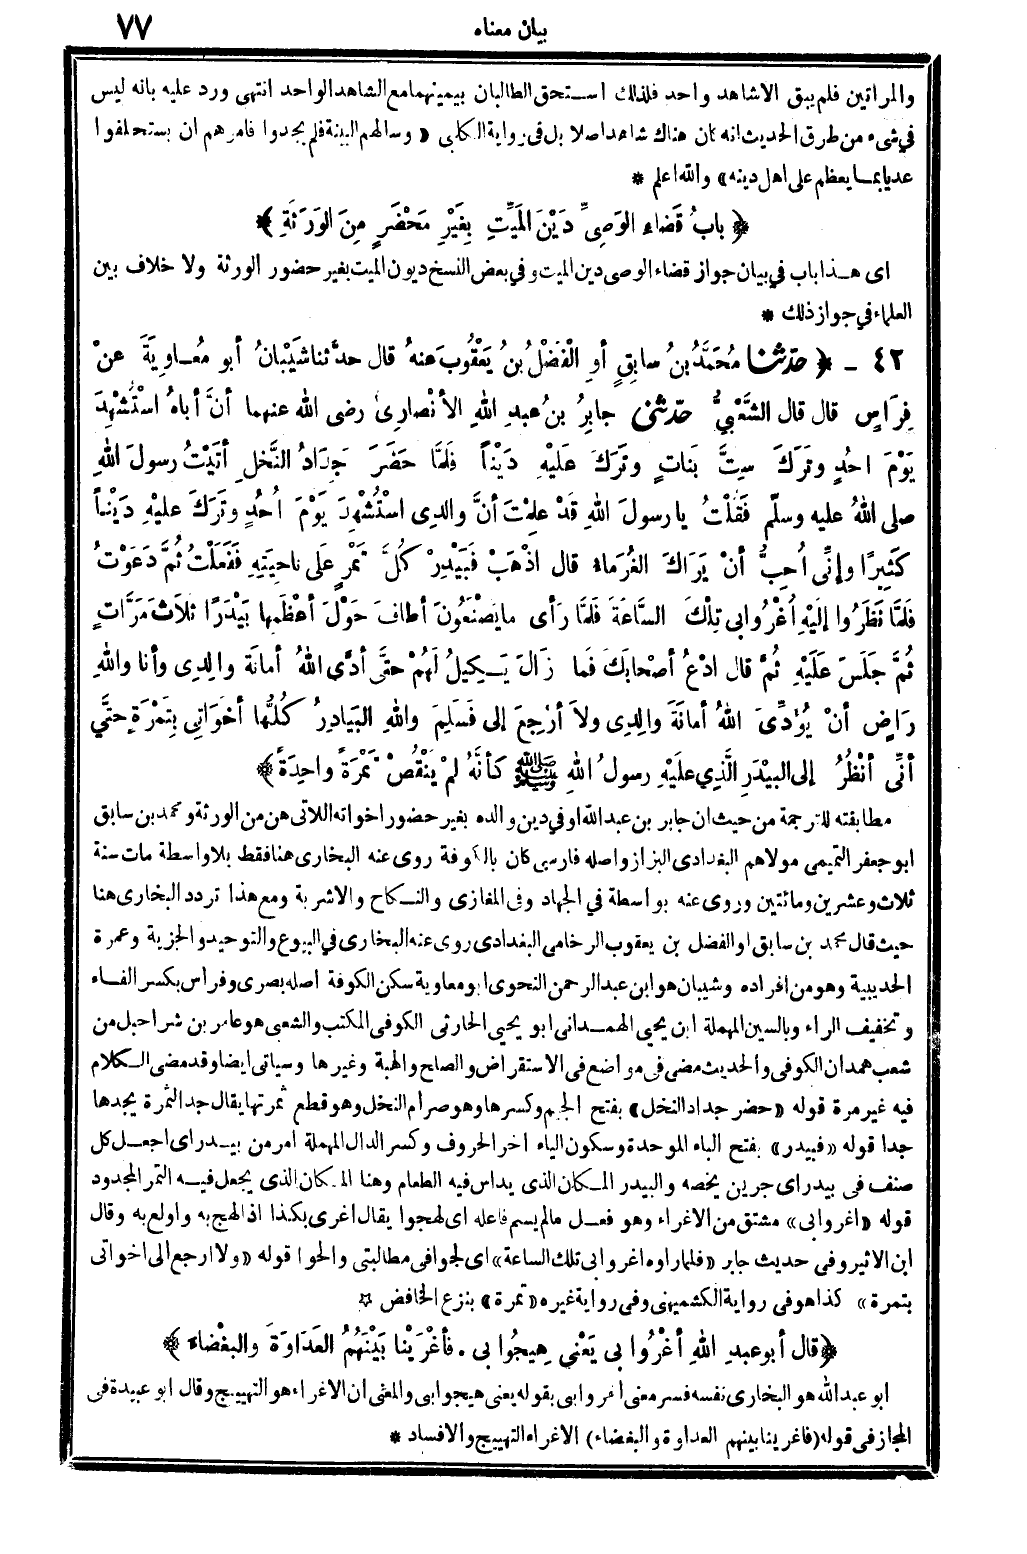 بيان معناه ٧٧
والمراتين فلم يبق الا شاهد واحد فلذلك استحق الطالبان بيمينهما مع الشاهد الواحد انتهى ورد عليه بانه ليس
في شىء من طرق الحديث انه كان هناك شاهد اصلا بل فى رواية الكلبى « وسالهم البينة فلم يجدوا فامرهم ان يستحلفوا
عديا بما يعظم على اهل دينه» والله اعلم *
﴿ بابُ قَضاءِ الوَصِيِّ دَيْنَ المَيِّتِ بِغَيْرِ مَحْضَرٍ مِنَ الوَرَثَةِ ﴾
اى هذا باب في بيان جواز قضاء الوصى دين الميت وفي بعض النسخ ديون الميت بغير حضور الورثة ولا خلاف بين
العلماء في جواز ذلك *
٤٢ - ﴿ حَدّثنا مُحَمَّدُ بنُ سابِقٍ أوِ الْفَضْلُ بنُ يَعْقُوبَ عنهُ قال حدَّثنا شَيْبانُ أبو مُعاوِيَةَ عنْ
فِرَاسٍ قال قال الشَّعْبِيُّ حدّثنى جابِرُ بنُ عبدِ اللهِ الأنْصارِىُّ رضى الله عنهما أنَّ أباهُ اسْتُشْهِدَ
يَوْمَ احُدٍ وتَرَكَ سِتَّ بَناتٍ وتَرَكَ عَلَيْهِ دَيْناً فلَمَّا حَضَرَ جِدَادُ النَّخْلِ أتَيْتُ رسولَ اللهِ
صلى اللهُ عليه وسلّم فَقُلْتُ يا رسولَ اللهِ قَدْ عَلِمْتَ أنَّ والِدِى اسْتُشْهِدَ يَوْمَ أُحُدٍ وتَرَكَ عليْهِ دَيْناً
كَثِيرًا وإنِّى اُحِبُّ أنْ يَرَاكَ الغُرَماءُ قال اذْهَبْ فَبَيْدِرْ كُلَّ تَمْرٍ عَلَى ناحِيَتِهِ فَفَعَلْتُ ثُمَّ دَعَوْتُ
فلَمَّا نَظَرُوا إلَيْهِ اُغْرُوا بِى تِلْكَ السَّاعَةَ فلمَّا رَأى ما يَصْنَعُونَ أطافَ حَوْلَ أعْظَمِها بَيْدَرًا ثلاثَ مَرَّاتٍ
ثُمَّ جَلَسَ عَلَيْهِ ثُمَّ قال ادْعُ أصْحابَكَ فَما زَالَ يَكِيلُ لَهُمْ حتَّى أدَّى اللهُ أمانَةَ والِدِى وأنا واللهِ
رَاضٍ أنْ يُؤدِّىَ اللهُ أمانَةَ والِدِى ولاَ أرْجِعَ إلى أخَوَاتِى بِتَمْرَةٍ فَسَلِمَ واللهِ البَيادِرُ كُلُّها حتَّى
أنِّى أنْظُرُ إلى البَيْدَرِ الَّذِي عَلَيْهِ رسولُ اللهِ ﷺ كأنَّهُ لَمْ يَنْقُصْ تَمْرَةً واحِدَةً ﴾
مطابقته للترجمة من حيث ان جابر بن عبد الله اوفي دين والده بغير حضور اخواته اللاتى هن من الورثة ومحمد بن سابق
ابو جعفر التميمى مولاهم البغدادى البزاز واصله فارسى كان بالكوفة روى عنه البخارى هنا فقط بلا واسطة مات سنة
ثلاث وعشرين ومائتين وروى عنه بواسطة في الجهاد وفى المغازى والنكاح والاشربة ومع هذا تردد البخارى هنا
حيث قال محمد بن سابق او الفضل بن يعقوب الرخامى البغدادى روى عنه البخارى في البيوع والتوحيد والجزية وعمرة
الحديبية وهو من افراده وشيبان هو ابن عبد الرحمن النحوى ابو معاوية سكن الكوفة اصله بصرى وفراس بكسر الفاء
وتخفيف الراء وبالسين المهملة ابن يحيى الهمدانى ابو يحيى الحارثى الكوفى المكتب والشعبى هو عامر بن شراحيل من
شعب همدان الكوفى والحديث مضى فى مواضع فى الاستقراض والصلح والهبة وغيرها وسياتى ايضا وقد مضى الكلام
فيه غير مرة قوله «حضر جداد النخل» بفتح الجيم وكسرها وهو صرام النخل وهو قطع ثمرتها يقال جد الثمرة يجدها
جدا قوله «فبيدر» بفتح الباء الموحدة وسكون الياء اخر الحروف وكسر الدال المهملة امر من بيدر اى اجعل كل
صنف فى بيدر اى جرين يخصه والبيدر المكان الذى يداس فيه الطعام وهنا المكان الذى يجعل فيه التمر المجدود
قوله «اغروا بى» مشتق من الاغراء وهو فعل ما لم يسم فاعله اى لهجوا يقال اغرى بكذا اذا لهج به واولع به وقال
ابن الاثير وفى حديث جابر «فلما راوه اغروا بى تلك الساعة» اى لجوا فى مطالبتى والحوا قوله «ولا ارجع الى اخواتى
بتمرة» كذا هو فى رواية الكشميهنى وفى رواية غيره «تمرة» بنزع الخافض ☆
﴿ قال أبو عبدِ اللهِ أغْرُوا بِى يَعْنِي هِيجُوا بِى . فأغْرَيْنا بَيْنَهُمُ العَدَاوَةَ والبغْضاءَ ﴾
ابو عبد الله هو البخارى نفسه فسر معنى اغروا بى بقوله يعنى هيجوا بى والمعنى ان الاغراء هو التهييج وقال ابو عبيدة فى
المجاز فى قوله (فاغرينا بينهم العداوة والبغضاء) الاغراء التهييج والافساد *